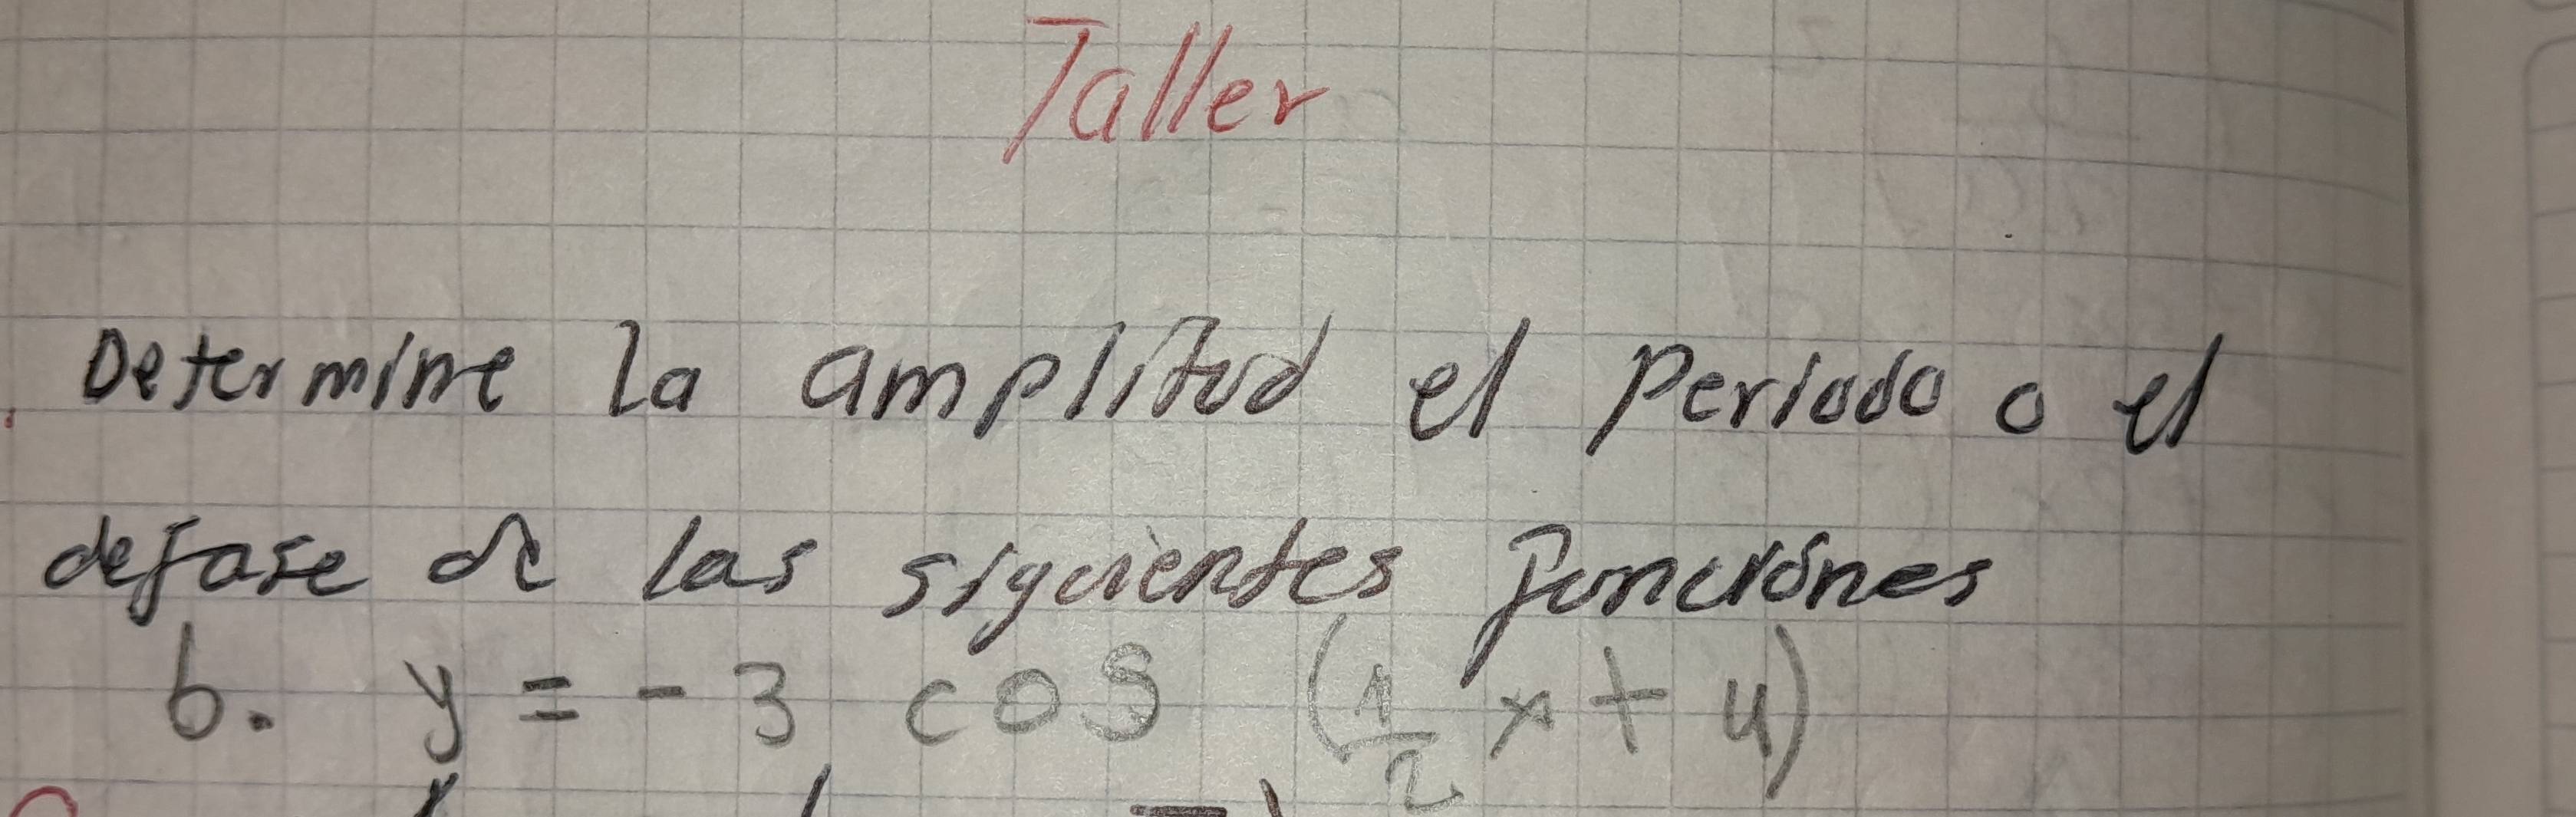 Taller
Determine la amplitud el periodo o el
defase de las siguientes funciónes
b. y = - 3 cos (1/2 x + 4)